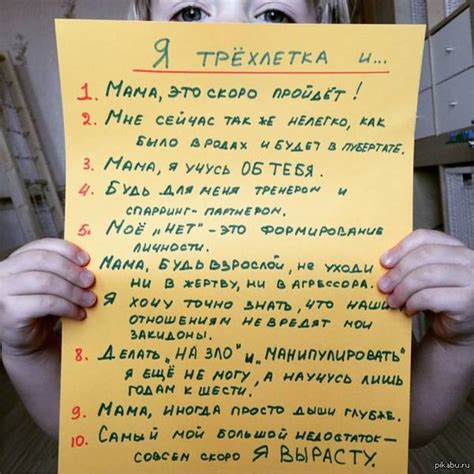 Я ТРЁХЛЕТКА И...
1. МАМА, ЭТО СКОРО ПРОЙДЁТ!
2. МНЕ СЕЙЧАС ТАК ЖЕ НЕЛЕГКО, КАК
БЫЛО В РОДАХ И БУДЕТ В ПУБЕРТАТЕ.
3. МАМА, Я УЧУСЬ ОБ ТЕБЯ.
4. БУДЬ ДЛЯ МЕНЯ ТРЕНЕРОМ И
СПАРРИНГ-ПАРТНЕРОМ.
5. МОЁ „НЕТ" - ЭТО ФОРМИРОВАНИЕ
ЛИЧНОСТИ.
МАМА, БУДЬ ВЗРОСЛОЙ, НЕ УХОДИ
НИ В ЖЕРТВУ, НИ В АГРЕССОРА.
Я ХОЧУ ТОЧНО ЗНАТЬ, ЧТО НАШИМ
ОТНОШЕНИЯМ НЕ ВРЕДЯТ МОИ
ЗАКИДОНЫ.
8. ДЕЛАТЬ „НА ЗЛО" И „МАНИПУЛИРОВАТЬ"
Я ЕЩЁ НЕ МОГУ, А НАУЧУСЬ ЛИШЬ
ГОДАМ К ШЕСТИ.
9. МАМА, ИНОГДА ПРОСТО ДЫШИ ГЛУБЖЕ.
10. САМЫЙ МОЙ БОЛЬШОЙ НЕДОСТАТОК-
СОВСЕМ СКОРО Я ВЫРАСТУ.
pikabu.ru